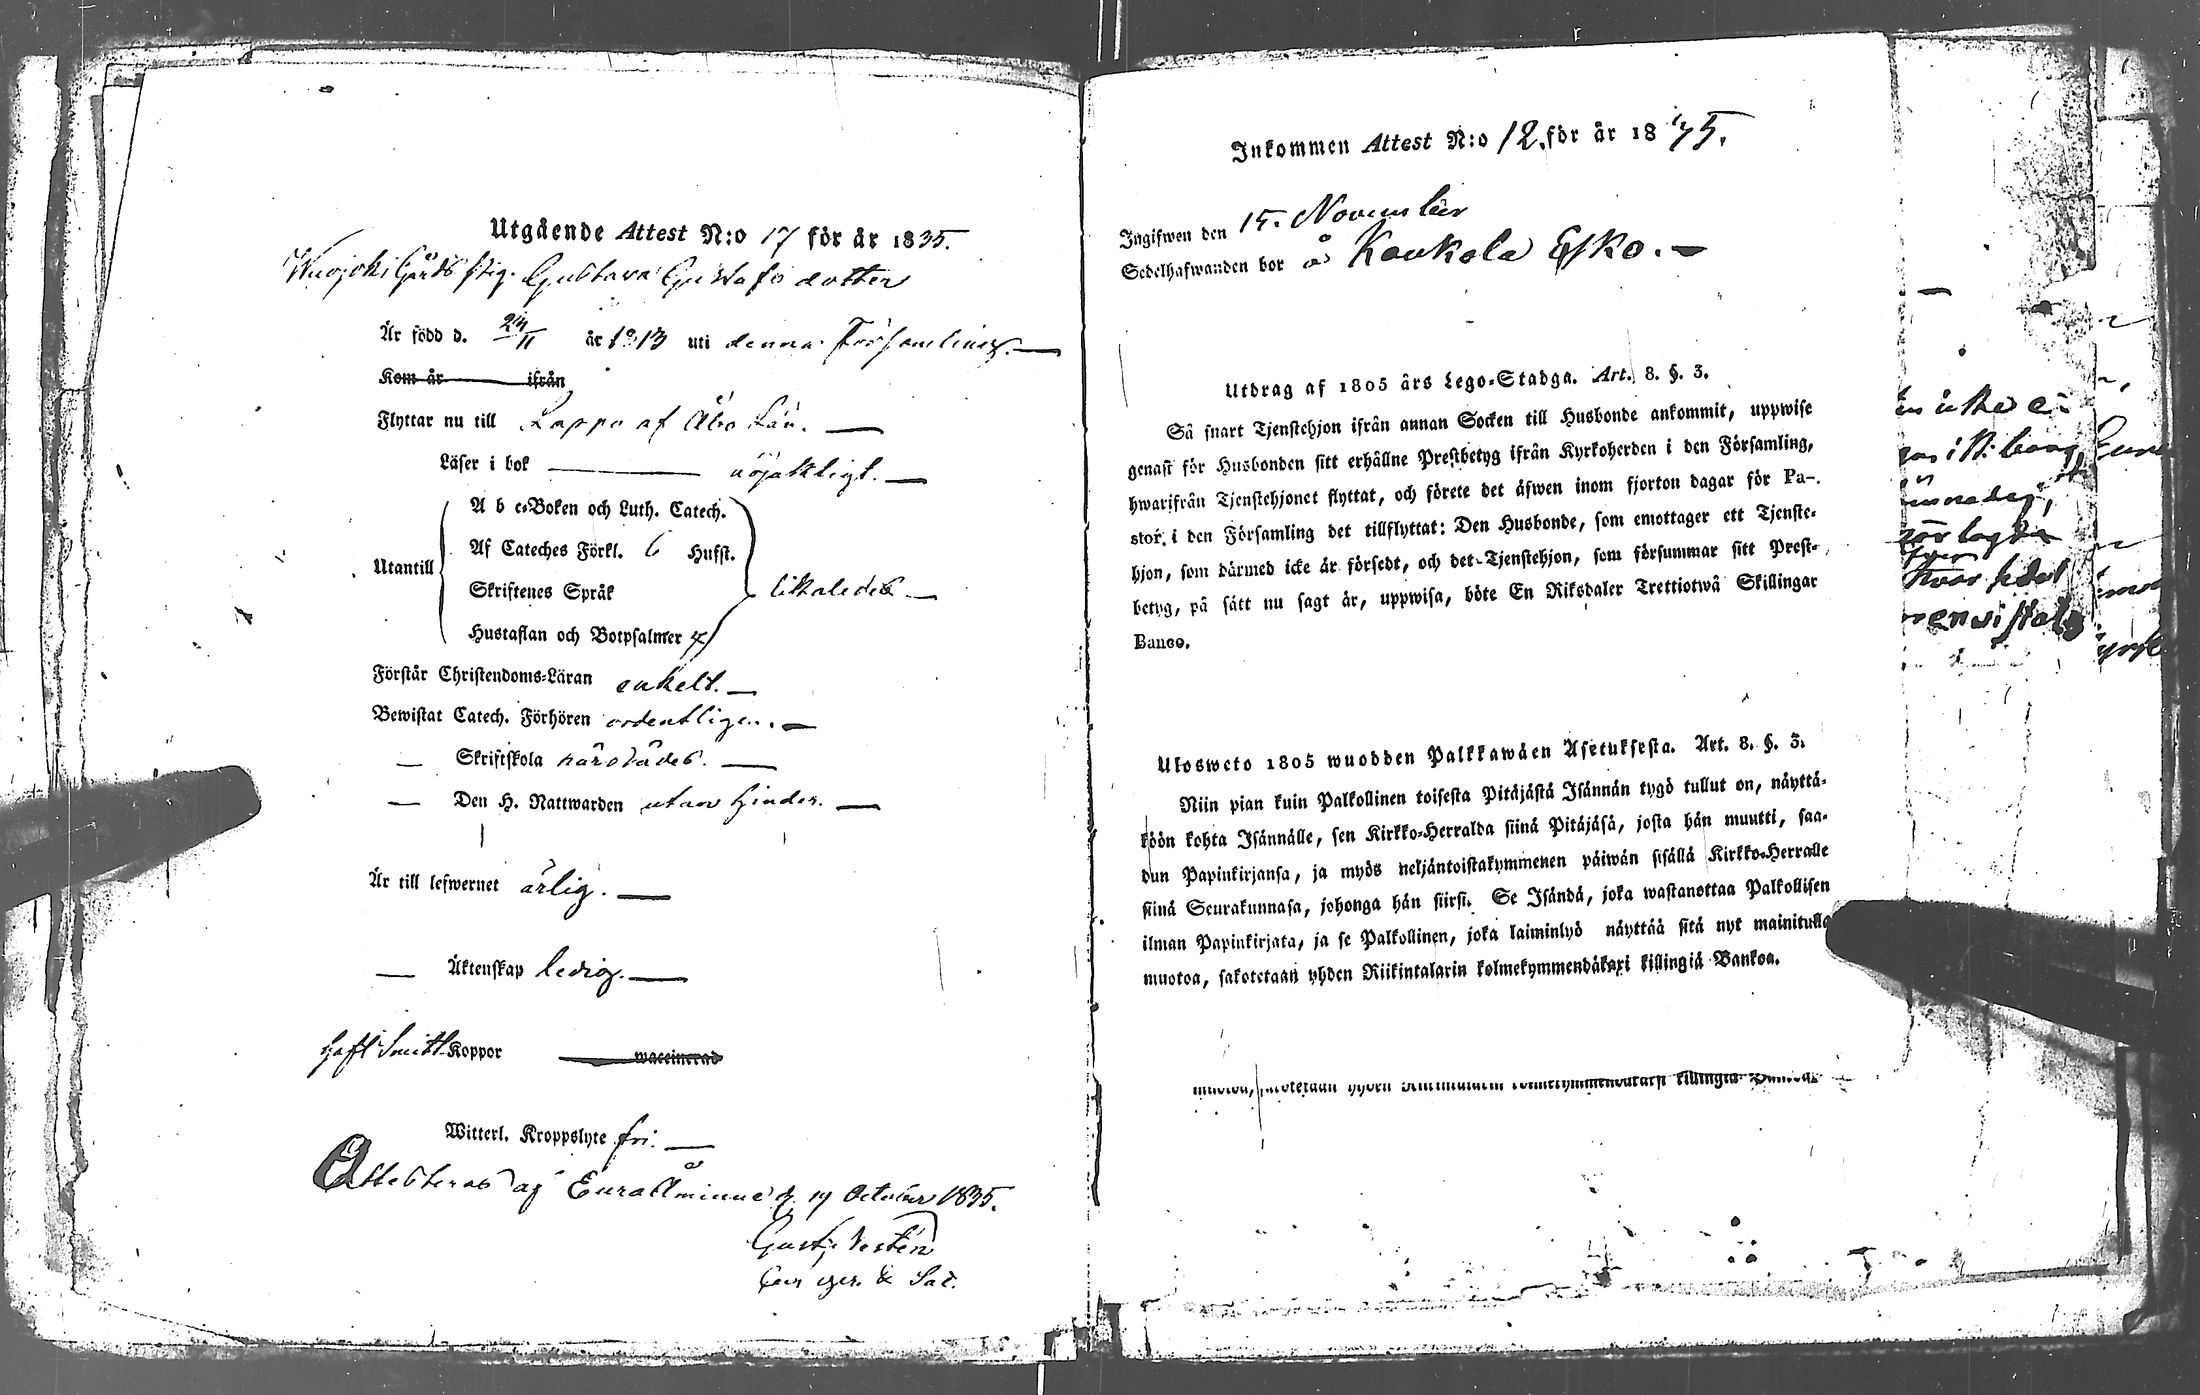 Utgående Attest N:o 17 för år 1835.
Wuojoki Gårds pig. Gustava Gustafsdotter
Är född d. 24/11 år 1813 uti denna Församling.
Kom år ifrån
Flyttar nu till Lappo af Åbo Län.
Läser i bok nöjaktligt.
A b c-Boken och Luth. Catech.
Af Cateches Förkl. 6 Hufst.
Utantill
Skriftenes Språk
likaledes
Hustaflan och Botpsalmer
Förstår Christendoms-Läran enkelt.
Bewistat Catech. Förhören ordentligen.
— Skriftskola härstädes.
— Den H. Nattwarden utan hinder.
Är till lefwernet ärlig.
— Äktenskap ledig.
Haft Smitt Koppor waccinerad
Witterl. Kroppslyte fri.
Attesteras af Eura Åminne d. 19 October 1835.
Gust.
Inkommen Attest N:o 12. för år 18 35.
Ingifwen den 15. November
Sedelhafwanden bor å Kaukola Esko.
Utdrag af 1805 års Lego-Stadga. Art. 8. §. 3.
Så snart Tjenstehjon ifrån annan Socken till Husbonde ankommit, uppwise
genast för Husbonden sitt erhållne Prestbetyg ifrån Kyrkoherden i den Församling,
hwarifrån Tjenstehjonet flyttat, och förete det äfwen inom fjorton dagar för Pa-
stor i den Församling det tillflyttat: Den Husbonde, som emottager ett Tjenste-
hjon, som därmed icke är försedt, och det Tjenstehjon, som försummar sitt Prest-
betyg, på sätt nu sagt är, uppwisa, böte En Riksdaler Trettiotwå Skillingar
Banco.
Ulosweto 1805 wuodden Palkkawäen Asetuksesta. Art. 8. §. 3.
Niin pian kuin Palkollinen toisesta Pitäjästä Isännän tygö tullut on, näyttä-
köön kohta Isännälle, sen Kirkko-Herralda siinä Pitäjäsä, josta hän muutti, saa-
dun Papinkirjansa, ja myös neljäntoistakymmenen päiwän sisällä Kirkko-Herralle
siinä Seurakunnasa, johonga hän siirsi. Se Isändä, joka wastanottaa Palkollisen
ilman Papinkirjata, ja se Palkollinen, joka laiminlyö näyttää sitä nyt mainitulla
muotoa, sakotetaan yhden Riikintalarin kolmekymmendäkaxi killingiä Bankoa.